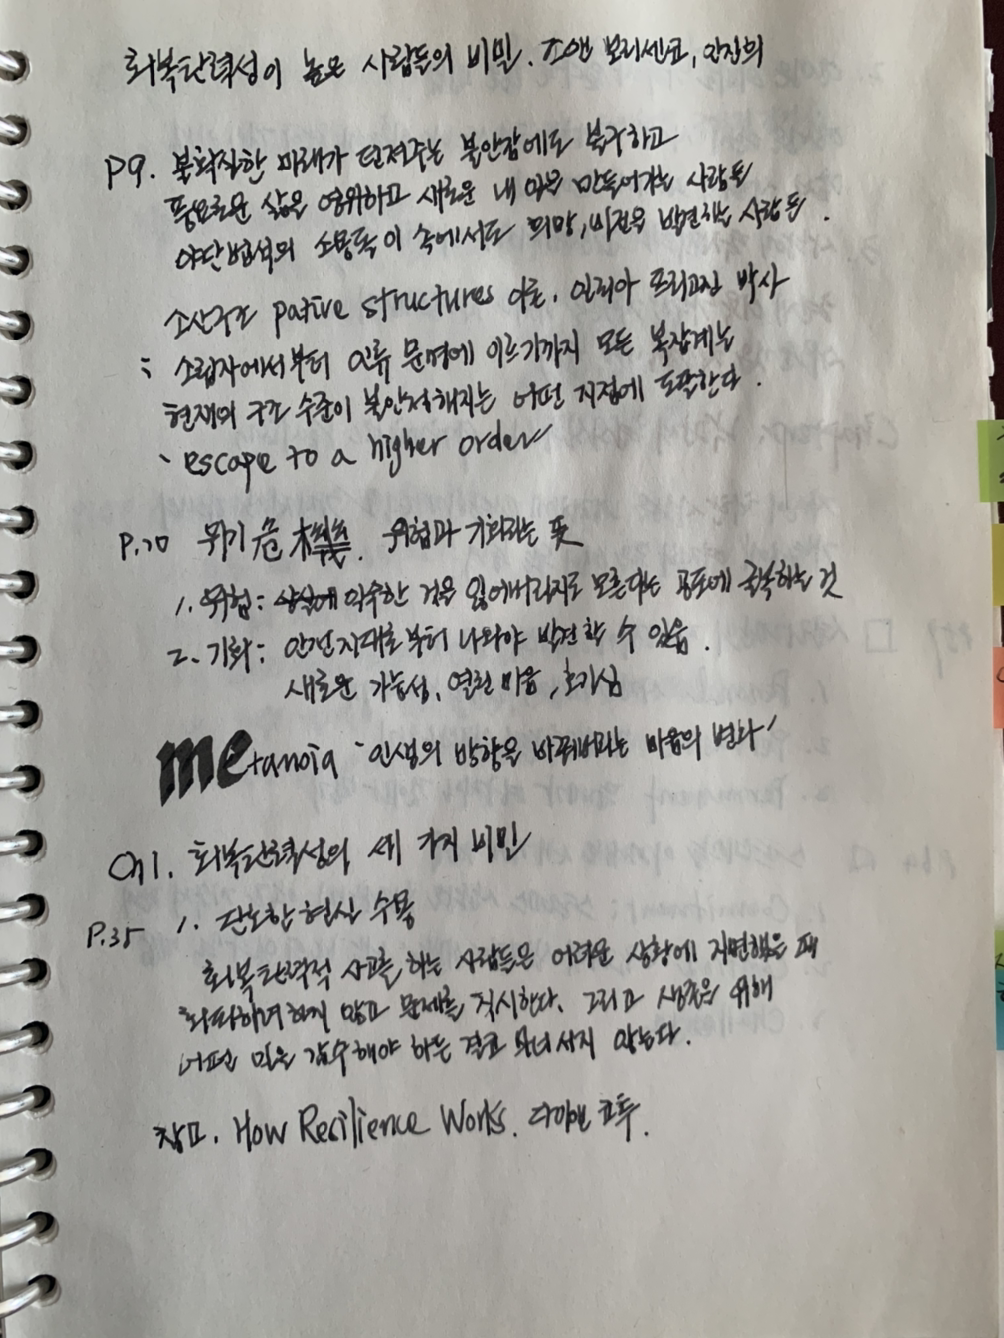 회복탄력성이 높은 사람들의 비밀. 조앤 보리센코, 안진희
P9. 불확실한 미래가 던져주는 불안감에도 불구하고
풍요로운 삶을 영위하고 새로운 내일을 만들어가는 사람들
야단법석의 소용돌이 속에서도 희망, 비전을 발견하는 사람들.
소산구조 pative structures 이론, 일리야 프리고진 박사
: 소립자에서부터 인류 문명에 이르기까지 모든 복잡계는
현재의 구조 수준이 불안정해지는 어떤 지점에 도달한다.
` escape to a higher order
P.20 위기 危機. 위험과 기회라는 뜻
1. 위험: 익숙한 것을 잃어버릴지도 모른다는 공포에 굴복하는 것
2. 기회: 안전지대로부터 나와야 발견할 수 있음.
새로운 가능성, 열린 마음, 호기심
metanoia '인생의 방향을 바꿔버리는 마음의 변화'
Ch1. 회복탄력성의 세 가지 비밀
P.35 1. 단호한 현실 수용
회복탄력적 사고를 하는 사람들은 어려운 상황에 직면했을 때
회피하려 하지 않고 문제를 직시한다. 그리고 생존을 위해
어떤 일을 감수해야 하든 결코 물러서지 않는다.
참고. How Recilience Works. 다이앤 코투.